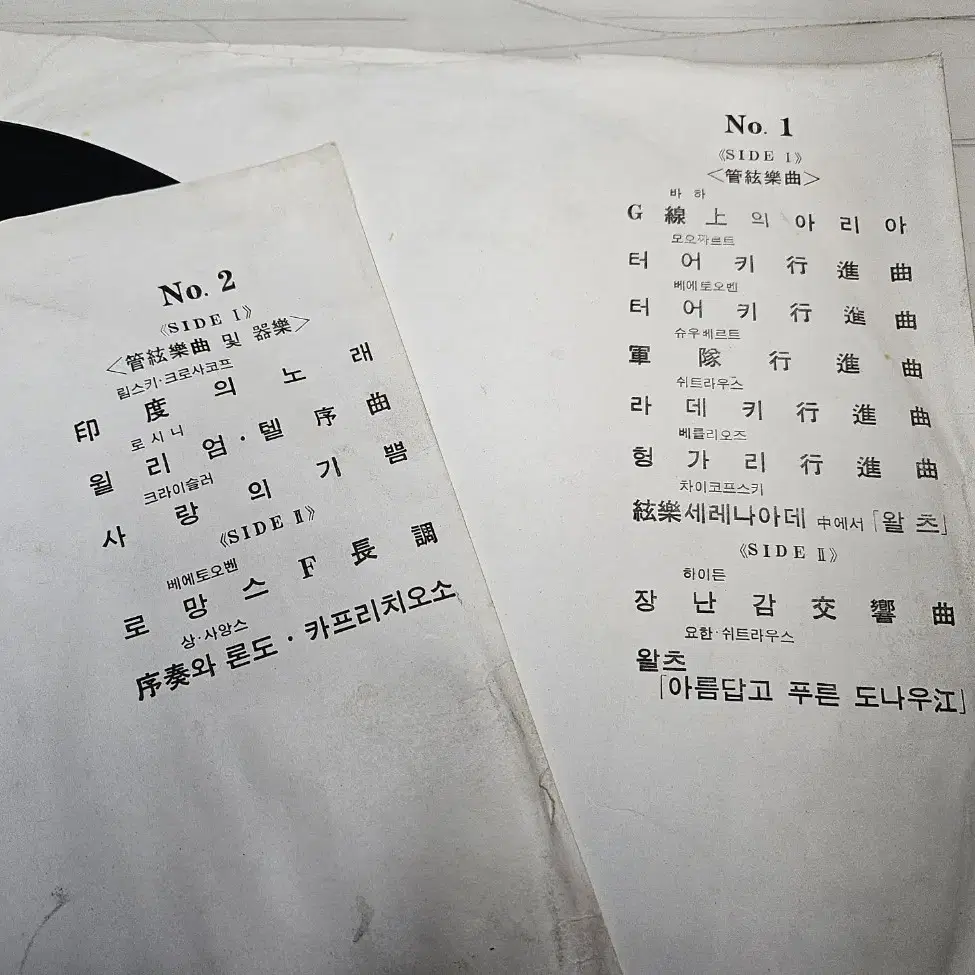 No. 1
《SIDE I》
<管絃樂曲>
바하
G線上의 아리아
모오짜르트
터어키行進曲
베에토오벤
터어키行進曲
슈우베르트
軍隊行進曲
쉬트라우스
라데키行進曲
베를리오즈
헝가리行進曲
차이코프스키
絃樂세레나아데 中에서「왈츠」
《SIDE II》
하이든
장난감交響曲
요한·쉬트라우스
왈츠
「아름답고 푸른 도나우江」
No. 2
《SIDE I》
<管絃樂曲 및 器樂>
림스키·크로사코프
印度의 노래
로시니
윌리엄·텔序曲
크라이슬러
사랑의 기쁨
《SIDE II》
베에토오벤
로망스F長調
상·사앙스
序奏와 론도·카프리치오소